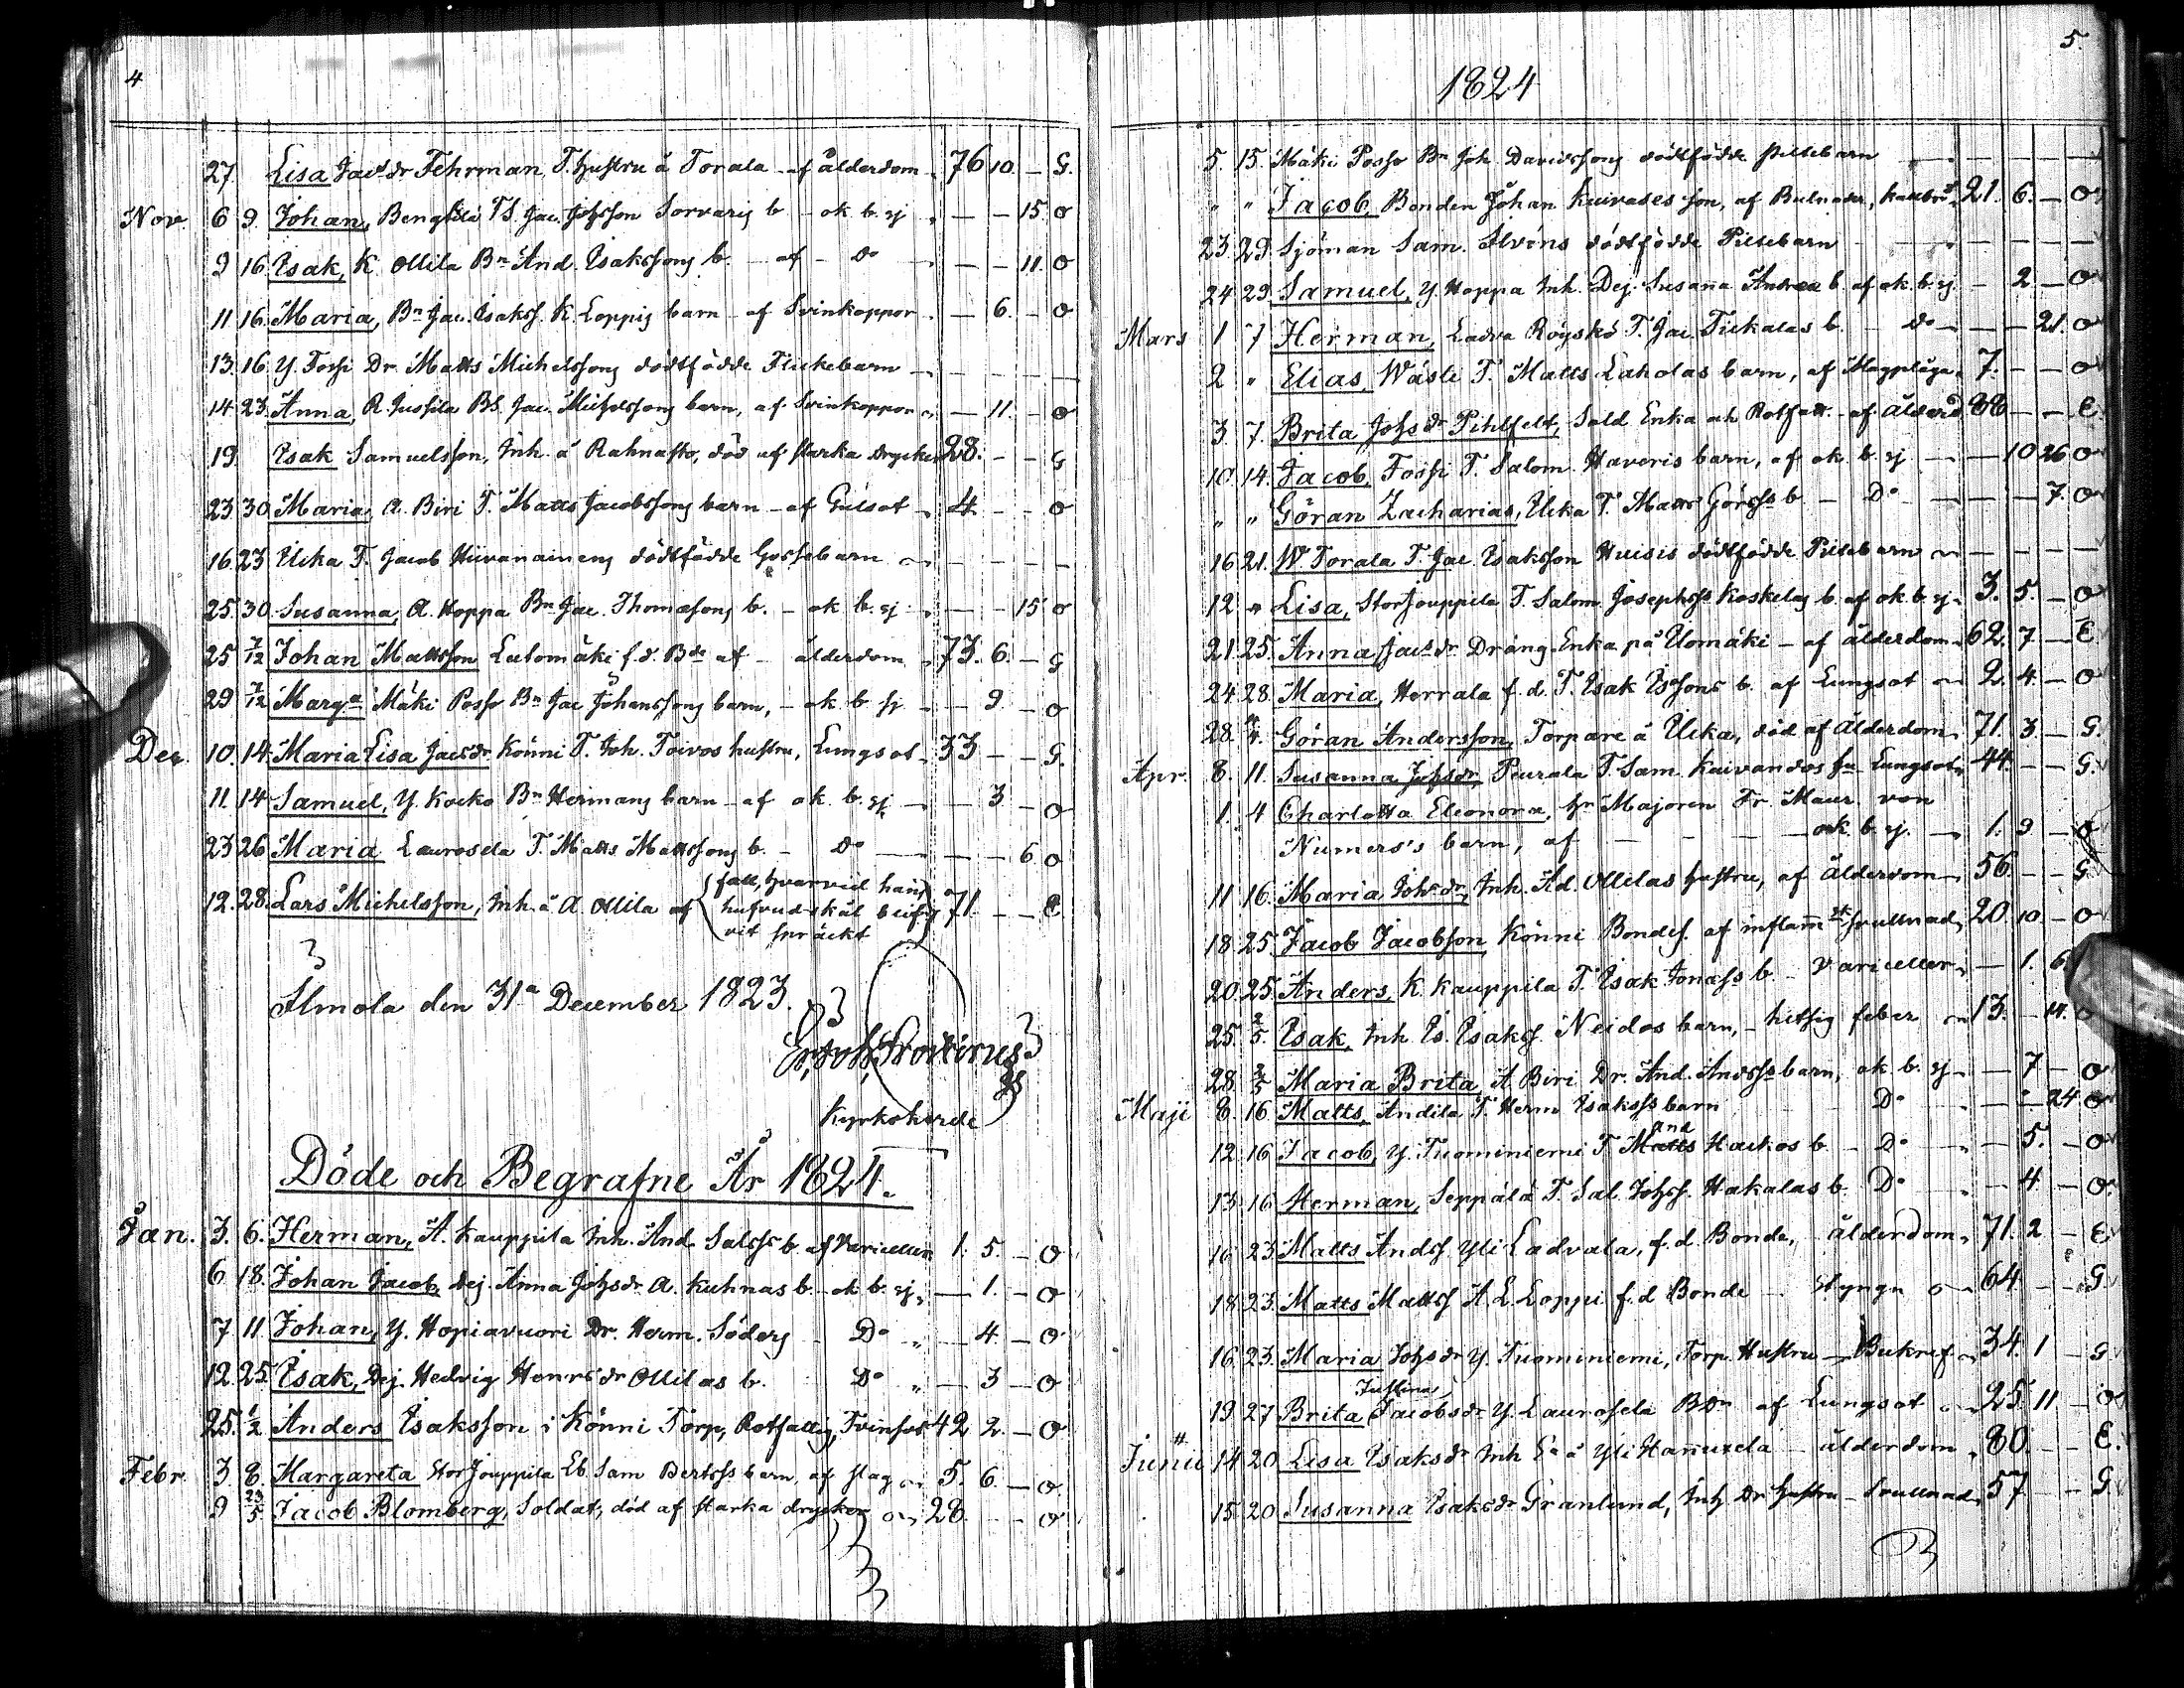 4
27 Lisa Jacsdr Fehrman, T. hustru å Torala - af ålderdom 76 10 - G.
Nov. 6 9. Johan, Bengtilä TS. Jac. Johsson Sorvaris b - ok. b. sj - - 15. O
9 16. Esak, K. Ollila Bn And. Esakssons b. - af - do - - - 11. O
11 16. Maria, Bn Jac. Esakss. K. Loppis barn - af Svinkoppor - 6. - O
13. 16 Y. Fossi Dr. Matts Michelssons dödtfödde Flickebarn - - - -
14 23. Anna, R. Jussila BS. Jac. Michelssons barn, af Svinkoppor - 11. - O
19. Esak Samuelsson, Inh. å Rahnasto, död af starka drycker 28. - - G
23. 30. Maria, A. Biri T. Matts Jacobssons barn - af Gulsot - 4. - - O
16. 23 Ucka T. Jacob Hiivanainens dödtfödde Gossebarn - - - -
25. 30. Susanna, A. Hoppa Bn Jac. Thomæsons b. - ok. b. sj - - - 15 O
25 7/12 Johan Mattsson Lulomäki f. d. Bde af - ålderdom 73. 6. - G
29 7/12 Marga Mäki Posso Bn Jac Johanssons barn, - ok. b. sj - - 9 - O
Dec. 10. 14. Maria Lisa Jacsdr Könni T. Joh. Toivos hustru, Lungsot - 33 - - G.
11 14 Samuel, Y. Kocko Bn Hermans barn - af ok. b. sj - - 3 - O
23 26 Maria Laurosela T. Matts Mattssons b. - do - - - 6 O
12. 28. Lars Michelsson, Inh. å A. Ollila af fall, hvarvid hans
hufvudskål blif
vit spräckt 71. - - E
Ilmola den 31a December 1823.
Kyrkoherde
Döde och Begrafne År 1824.
Jan. 3. 6. Herman, A. Kauppila Inh. And. Salsss b. af Varicellen 1. 5. - O
6 18. Johan Jacob, Dej. Anna Johsdr A. Kuhnas b. - ok. b. sj - 1. - O
7 11. Johan, Y. Hopiavuori Dr. Herm. Söders - Do - 4. - O
12. 25. Esak, Dej. Hedvig Henrsdr Ollilas b. Do - 3 - O
25. 1/2 Anders Esaksson i Könni Torp, Rotfattig, Tvinsot 42 2. - O
Febr. 3. 8. Margareta StorJouppila Eb. Sam Bertsss barn, af slag 5. 6. - O
9 23/5 Jacob Blomberg, Soldat, död af starka drycker 28. - - O
5.
1824
5. 15. Mäki Posso Bn Joh. Davidssons dödtfödde Piltebarn - - - -
" " Jacob, Bonden Johan Kuivases son, af Bulnader, 21. 6. - O
23. 29. Sjöman Sam. Ilvéns dödtfödde Piltebarn - - - -
24 29. Samuel, Y. Hoppa Inh. Dej. Susanna Andrea b. af ok. b. sj. - 2 - O
Mars 1 7 Herman, Ladva Röyskö T. Jac. Tickalas b. - do - - - 21. O
2 " Elias, Wästi T. Matts Laholas barn, af Magplåga 7. - - O
3 7. Brita Johsdr Pihlfelt, Sold Enka och Rotfatt. - af Ålderd 88 - - E
10. 14. Jacob, Fossi T. Salom. Haveris barn, af ok. b. sj - - 10 26 O
" " Göran Zacharias, Ucka T. Matts Görsss b. - Do - - - 7. O
16 21. W. Torala T. Jac. Esaksson Huisis dödtfödde Piltebarn - - - -
12. " Lisa, StorJouppila T. Salom. Josephss Koskelas b. af ok. b. sj - 3. 5. - O
21. 25. Anna Jacsdr Dräng Enka på Uomäki - af ålderdom 62. 7 - E
24 28. Maria, Herrala f. d. T. Esak Essons b. af Lungsot 2. 4. - O
28. Göran Andersson, Torpare å Ucka, död af Ålderdom 71. 3 - G.
Apr. 8. 11. Susanna Johsdr, Peurala T. Sam. Kuivandos hu Lungsot 44. - - G.
1. 4 Charlotta Eleonora, Hr Majoren Fr. Maur. von
Numers's barn, af - - - ok. b. sj. - 1. 9 - O
11 16. Maria Johsdr, Inh. Ad. Ollilas hustru, af Ålderdom 56 - - G
18. 25. Jacob Jacobson Könni Bondes. af inflamm svullnad 20 10 - O
20. 25. Anders, K. Kauppila T. Esak Jonæss b. - Varicellen - 1. 6.
25. 2/5. Esak, Inh. Es. Esakss. Neidos barn, - hetsig feber 13. - 14.
28. 2/5 Maria Brita A Biri Dr. And. Andsss barn, ok. b. sj - - 7 - O
Maji 8. 16. Matts, Andila T. Herm Esaksss barn Do - - 24. O
12. 16 Jacob, Y. Tuominiemi T Matts And Hackos b. - Do - 5. - O
13. 16 Herman, Seppälä T. Sal. Johss. Hakalas b. Do - 4 - O.
16. 23. Matts Andss. Yli Ladvala, f. d. Bonde, ålderdom 71. 2 - E
18. 23. Matts Mattss A. L. Loppi f. d Bonde - Styngn 64. - - G
16. 23. Maria Johsdr Y. Tuominiemi, Torp. Hustru - Bukref 34. 1 - G
19. 27 Brita Justina Jacobsdr Y. Laurosela BDr af Lungsot 25. 11 - O
Junii 14 20. Lisa Esaksdr Inh Ea å Yli Hannuxela ålderdom 80. - - E.
15. 20. Susanna Esaksdr Granlund, Inh Dr hustru - Svullnad 57 - - G